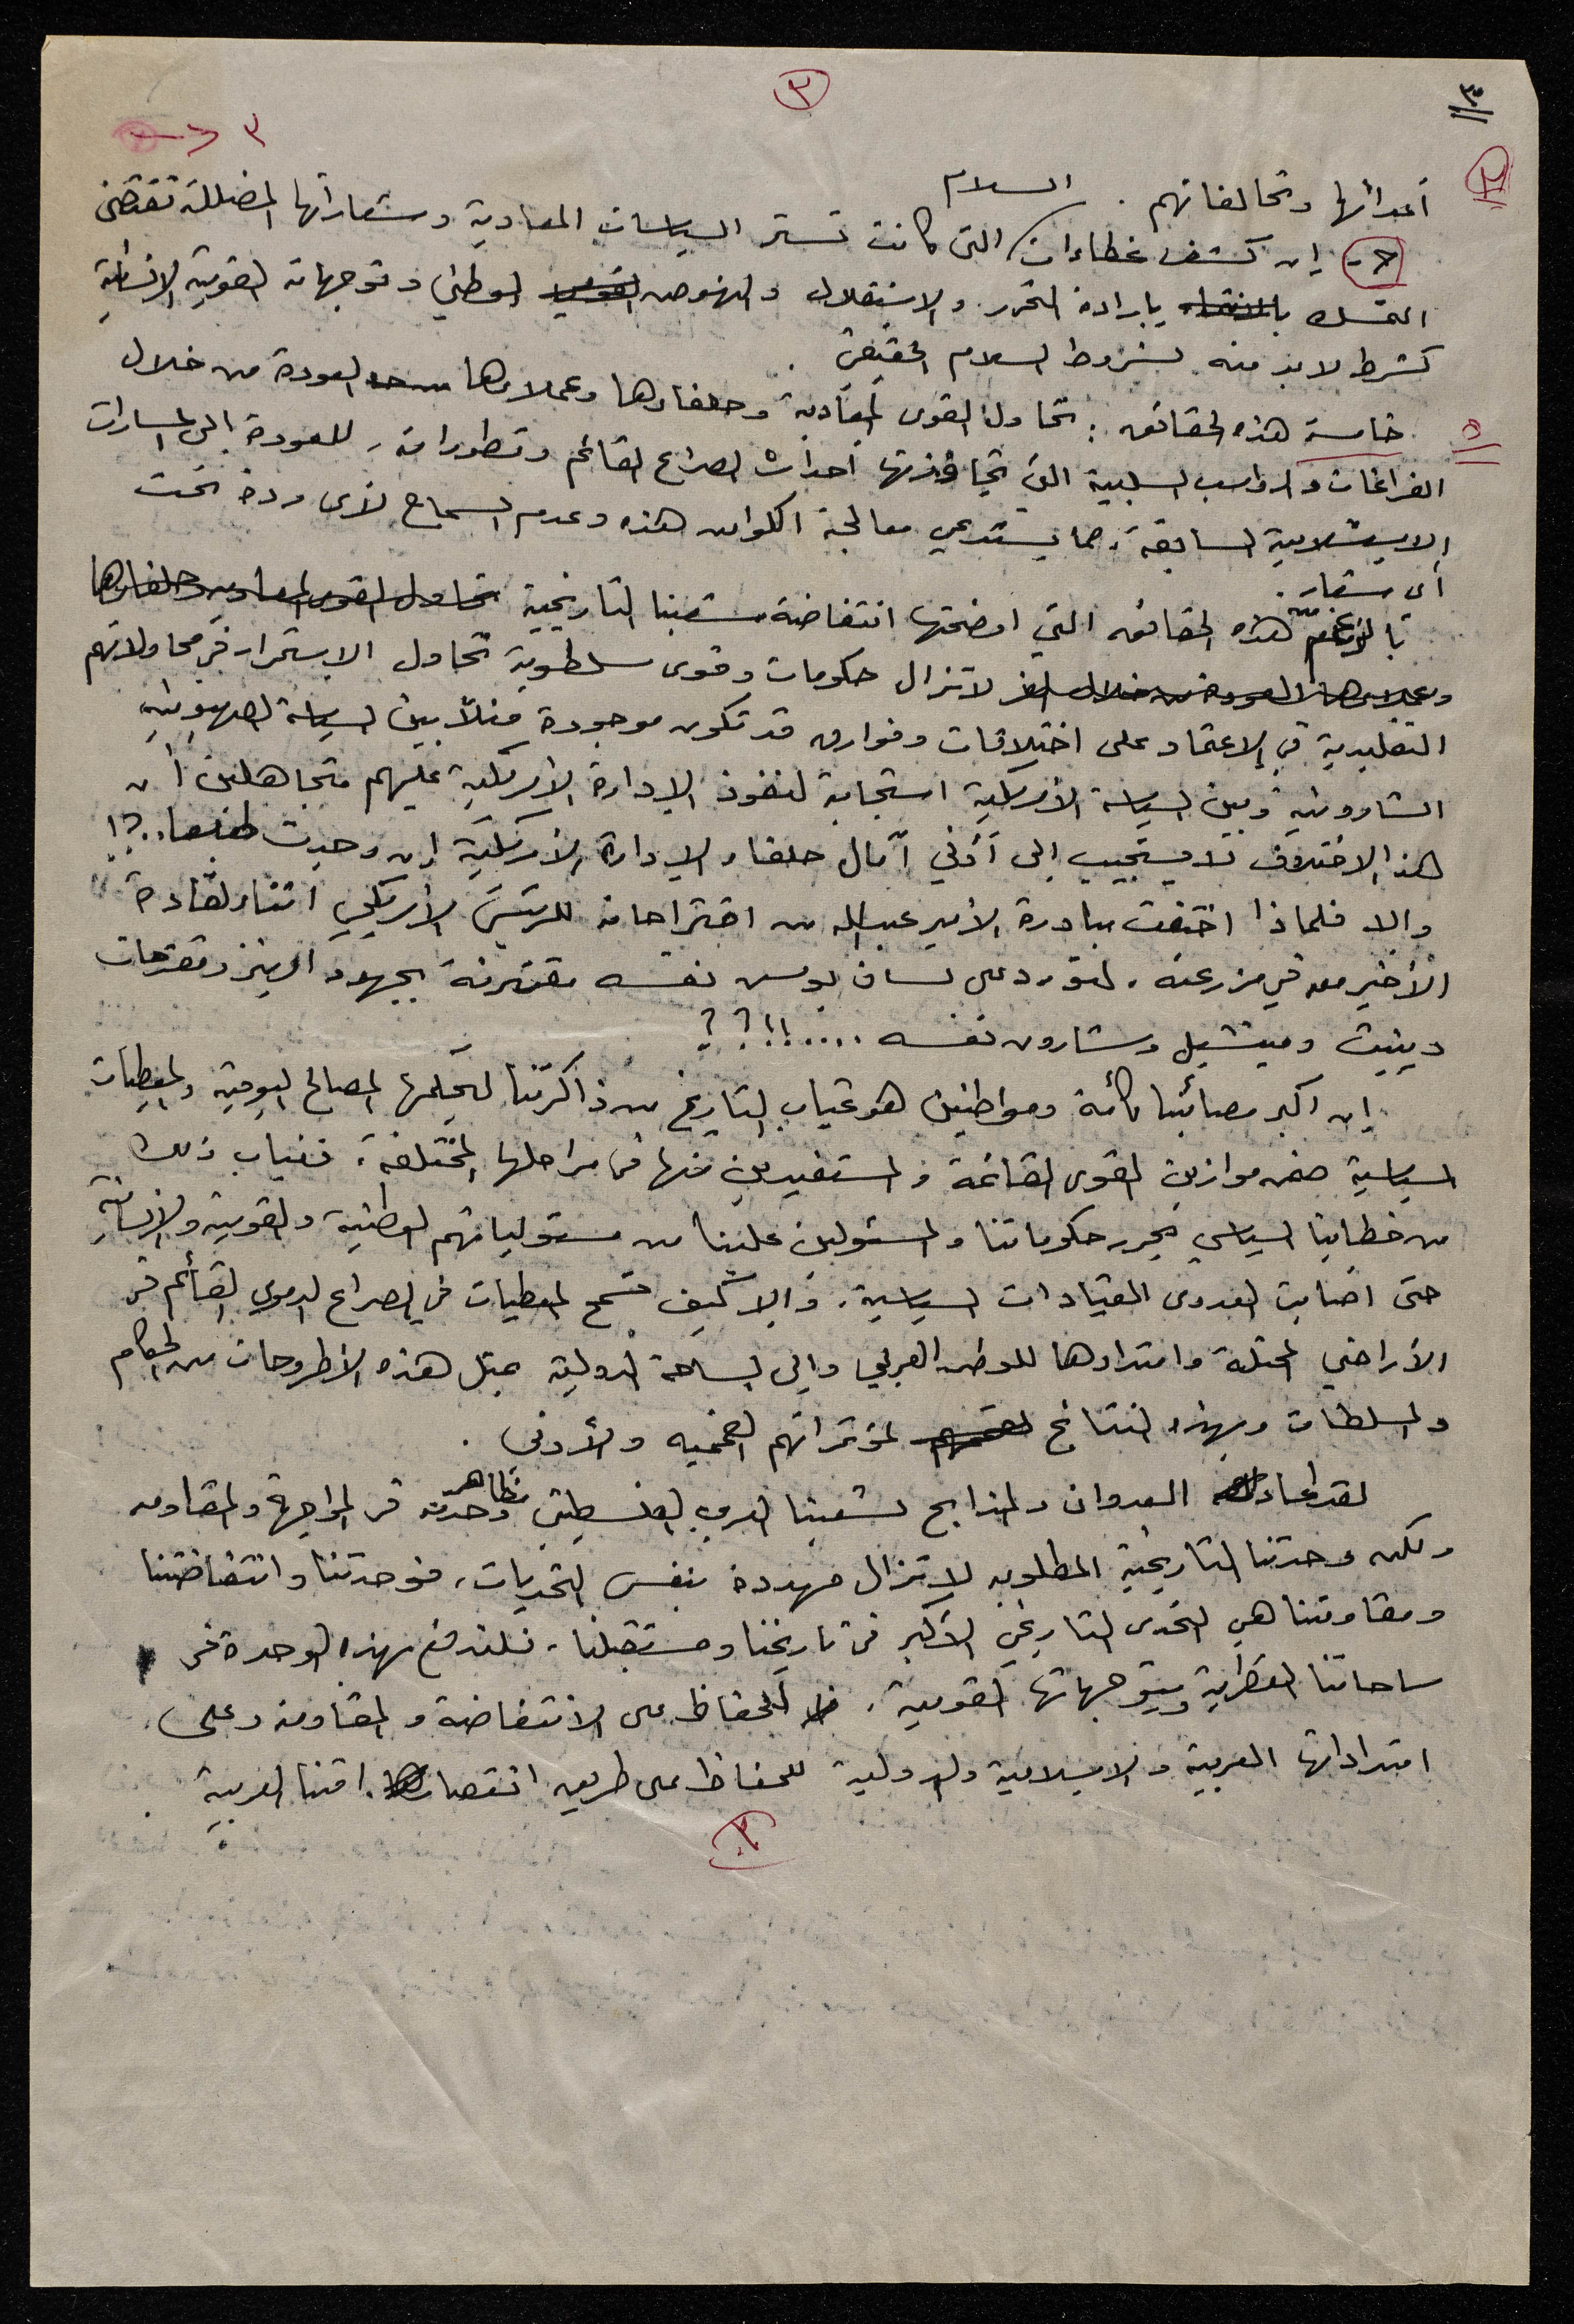 ٣
٣
٣
٣ <—
أعدائها وتحالفاتهم .
السلام
>- إن كشف غطاءات التي كانت تستر السياسات المعادية وشعاراتها المضللة تقتضي
التمسك بإرادة التحرر والاستقلال والنهوض الوطني وتوجهاته القومية الإنسانية
كشرط لابد منه لشروط السلام الحقيقي .
٥ خامسة هذه الحقائق : تحاول القوى المعادية وحلفاءها وعملاءها العودة من خلال
الفراغات والرواسب السلبية التي تجاوزتها أحداث الصراع القائم وتطوراته ، للعودة إلى المسارات
الاستسلامية السابقة ، مما يستدعي معالجة الكوامن هذه وعدم السماح لأي ردة تحت
أي ستار .
بالرغم من هذه الحقائق التي اوضحتها انتفاضة شعبنا التاريخية تحاول القوى المعادية وحلفاءها
وعملاءها العودة من خلال لاتزال حكومات وقوى سلطوية تحاول الاستمرار في محاولاتهم
التقليدية في الاعتماد على اختلافات وفوارق قد تكون موجودة مثلاً بين السياسة الصهيونية
الشارونية وبين السياسة الأمريكية استجابة لنفوذ الإدارة الأمريكية عليهم متجاهلين أن
هذا الاختلاف لا يستجيب إلى أدنى آمال حلفاء الإدارة الأمريكية إن وجدت ..؟!
والا فلماذا اختفت مبادرة الأمير عبدالله من اقتراحاته للرئيس الأمريكي اثناء لقاءه
الأخير معه في مزرعته ، لتورد على لسان بوش نفسه مقترنة بجهود ومقترحات
تينيت وميتشيل وشارون نفسه ....!!؟؟
إن اكبر مصائبنا كأمة ومواطنين هو غياب التاريخ من ذاكرتنا لتحكمها المصالح اليومية والمعطيات
السياسية ضمن موازين القوى القائمة والمستفيدين منها في مراحلها المختلفة ، فغياب ذلك
من خطابنا السياسي يحرر حكوماتنا والمسئولين علينا من مسئولياتهم الوطنية والقومية والإنسانية
حتى اصابت العدوى القيادات السياسية ، وإلا كيف تسمح المعطيات في الصراع الدموي القائم في
الأراضي المحتلة وامتدادها للوطن العربي وإلى الساحة الدولية بمثل هذه الأطروحات من الحكام
والسلطات وبهذه النتائج لمؤتمراتهم القممية والأدنى .
لقد اعاد العدوان والمذابح لشعبنا العربي الفلسطيني مظاهر وحدته في المواجهة والمقاومة
ولكن وحدتنا التاريخية المطلوبه لاتزال مهددة بنفس التحديات ، فوحدتنا وانتفاضتنا
ومقاومتنا هي التحدي التاريخي الأكبر في تاريخنا ومستقبلنا ، فلندفع بهذه الوحدة في
ساحاتنا القطرية وبتوجهاتها القومية ، للحفاظ على الانتفاضة والمقاومة وعلى
امتداداتها العربية والاسلامية والدولية للحفاظ على طريق انتصار امتنا العربية .
٣